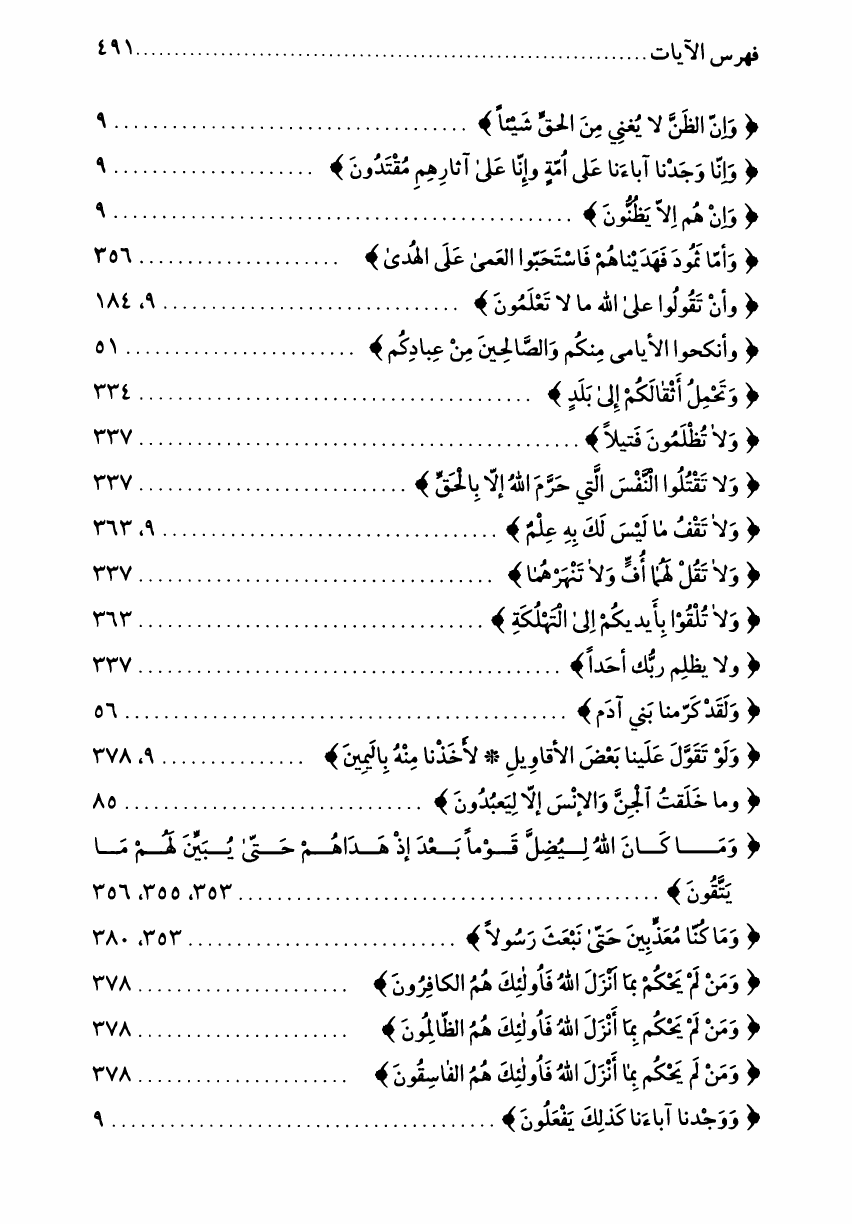 فهرس الآيات ................................ ٤٩١
﴿ وَإنّ الظَنَّ لا يُغنِي مِنَ الحقِّ شَيْئاً ﴾ ................................ ٩
﴿ وَإنّا وَجَدْنا آباءَنا عَلى اُمّةٍ وإنّا عَلىٰ آثارِهِمِ مُقْتَدُونَ ﴾ .................... ٩
﴿ وَإنْ هُم إلاّ يَظُنُّونَ ﴾ ................................ ٩
﴿ وَأمّا ثَمُودَ فَهَدَيْناهُمْ فَاسْتَحَبّوا العَمىٰ عَلَى الهُدىٰ ﴾ .................... ٣٥٦
﴿ وأنْ تَقُولُوا علىٰ الله ما لا تَعْلَمُونَ ﴾ ................................ ٩، ١٨٤
﴿ وأنكحوا الأيامى مِنكُم وَالصَّالِحِينَ مِنْ عِبادِكُم ﴾ ........................ ٥١
﴿ وَتَحْمِلُ أَثْقالَكُمْ إلىٰ بَلَدٍ ﴾ ................................ ٣٣٤
﴿ وَلاٰ تُظْلَمُونَ فَتيلاً ﴾ ................................ ٣٣٧
﴿ وَلا تَقْتُلُوا الْنَّفْسَ الَّتي حَرَّمَ اللهُ إلّا بِالْحَقِّ ﴾ ............................ ٣٣٧
﴿ وَلاٰ تَقْفُ مٰا لَيْسَ لَكَ بِهِ عِلْمٌ ﴾ ................................ ٩، ٣٦٣
﴿ وَلاٰ تَقُلْ لَهُمٰا أُفٍّ وَلاٰ تَنْهَرْهُمٰا ﴾ ................................ ٣٣٧
﴿ وَلاٰ تُلْقُوْا بِأَيديكُمْ اِلىٰ الْتَهْلُكَةِ ﴾ ................................ ٣٦٣
﴿ ولا يظلِم ربُّك أحَداً ﴾ ................................ ٣٣٧
﴿ وَلَقَدْ كَرّمنا بَني آدَم ﴾ ................................ ٥٦
﴿ وَلَوْ تَقَوَّلَ عَلَينا بَعْضَ الأقاوِيلِ * لأَخَذْنا مِنْهُ بِاليَمِينَ ﴾ ............... ٩، ٣٧٨
﴿ وما خَلَقتُ ٱلْجِنَّ وَالإنْسَ إلّا لِيَعبُدُونَ ﴾ ................................ ٨٥
﴿ وَمَـــا كَـــانَ اللهُ لِـــيُضِلَّ قَـــوْماً بَـــعْدَ إذْ هَـــدَاهُـــمْ حَـــتّىٰ يُـــبَيِّنَ لَهُـــمْ مَـــا
يَتَّقُونَ ﴾ ................................ ٣٥٣، ٣٥٥، ٣٥٦
﴿ وَمَا كُنّا مُعَذِّبِينَ حَتّىٰ نَبْعَثَ رَسُولاً ﴾ ............................ ٣٥٣، ٣٨٠
﴿ وَمَنْ لَمْ يَحْكُمْ بِمَا أَنْزَلَ اللهُ فَأُولٰئِكَ هُمُ الكافِرُونَ ﴾ ...................... ٣٧٨
﴿ وَمَنْ لَمْ يَحْكُم بِمَا أَنْزَلَ اللهُ فَأُولٰئِكَ هُمُ الظّالِمُونَ ﴾ ...................... ٣٧٨
﴿ وَمَنْ لَم يَحْكُم بِمٰا أَنْزَلَ اللهُ فَأُولٰئِكَ هُمُ الفٰاسِقُونَ ﴾ ...................... ٣٧٨
﴿ وَوَجَدْنا آباءَنا كَذلِكَ يَفْعَلُونَ ﴾ ................................ ٩